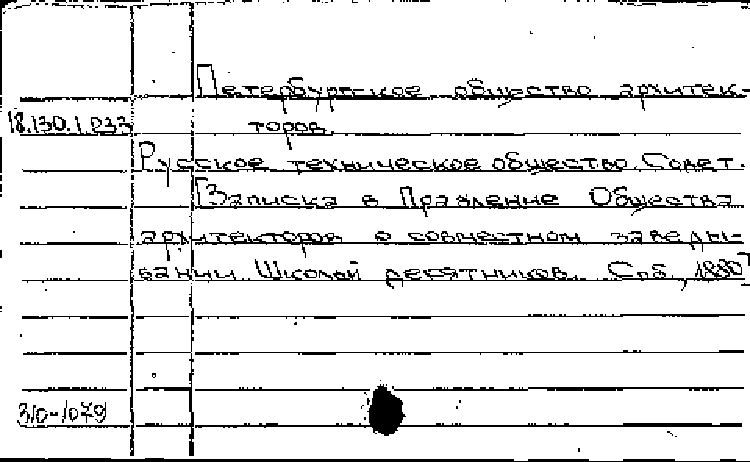 Петербургское общество архитек-
18.130.1.233 торов.
Русское техническое общество. Совет.
[Записка в Правление Общества
архитекторов о совместном заведы-
вании Школой десятников. Спб., 1880]
310-1079